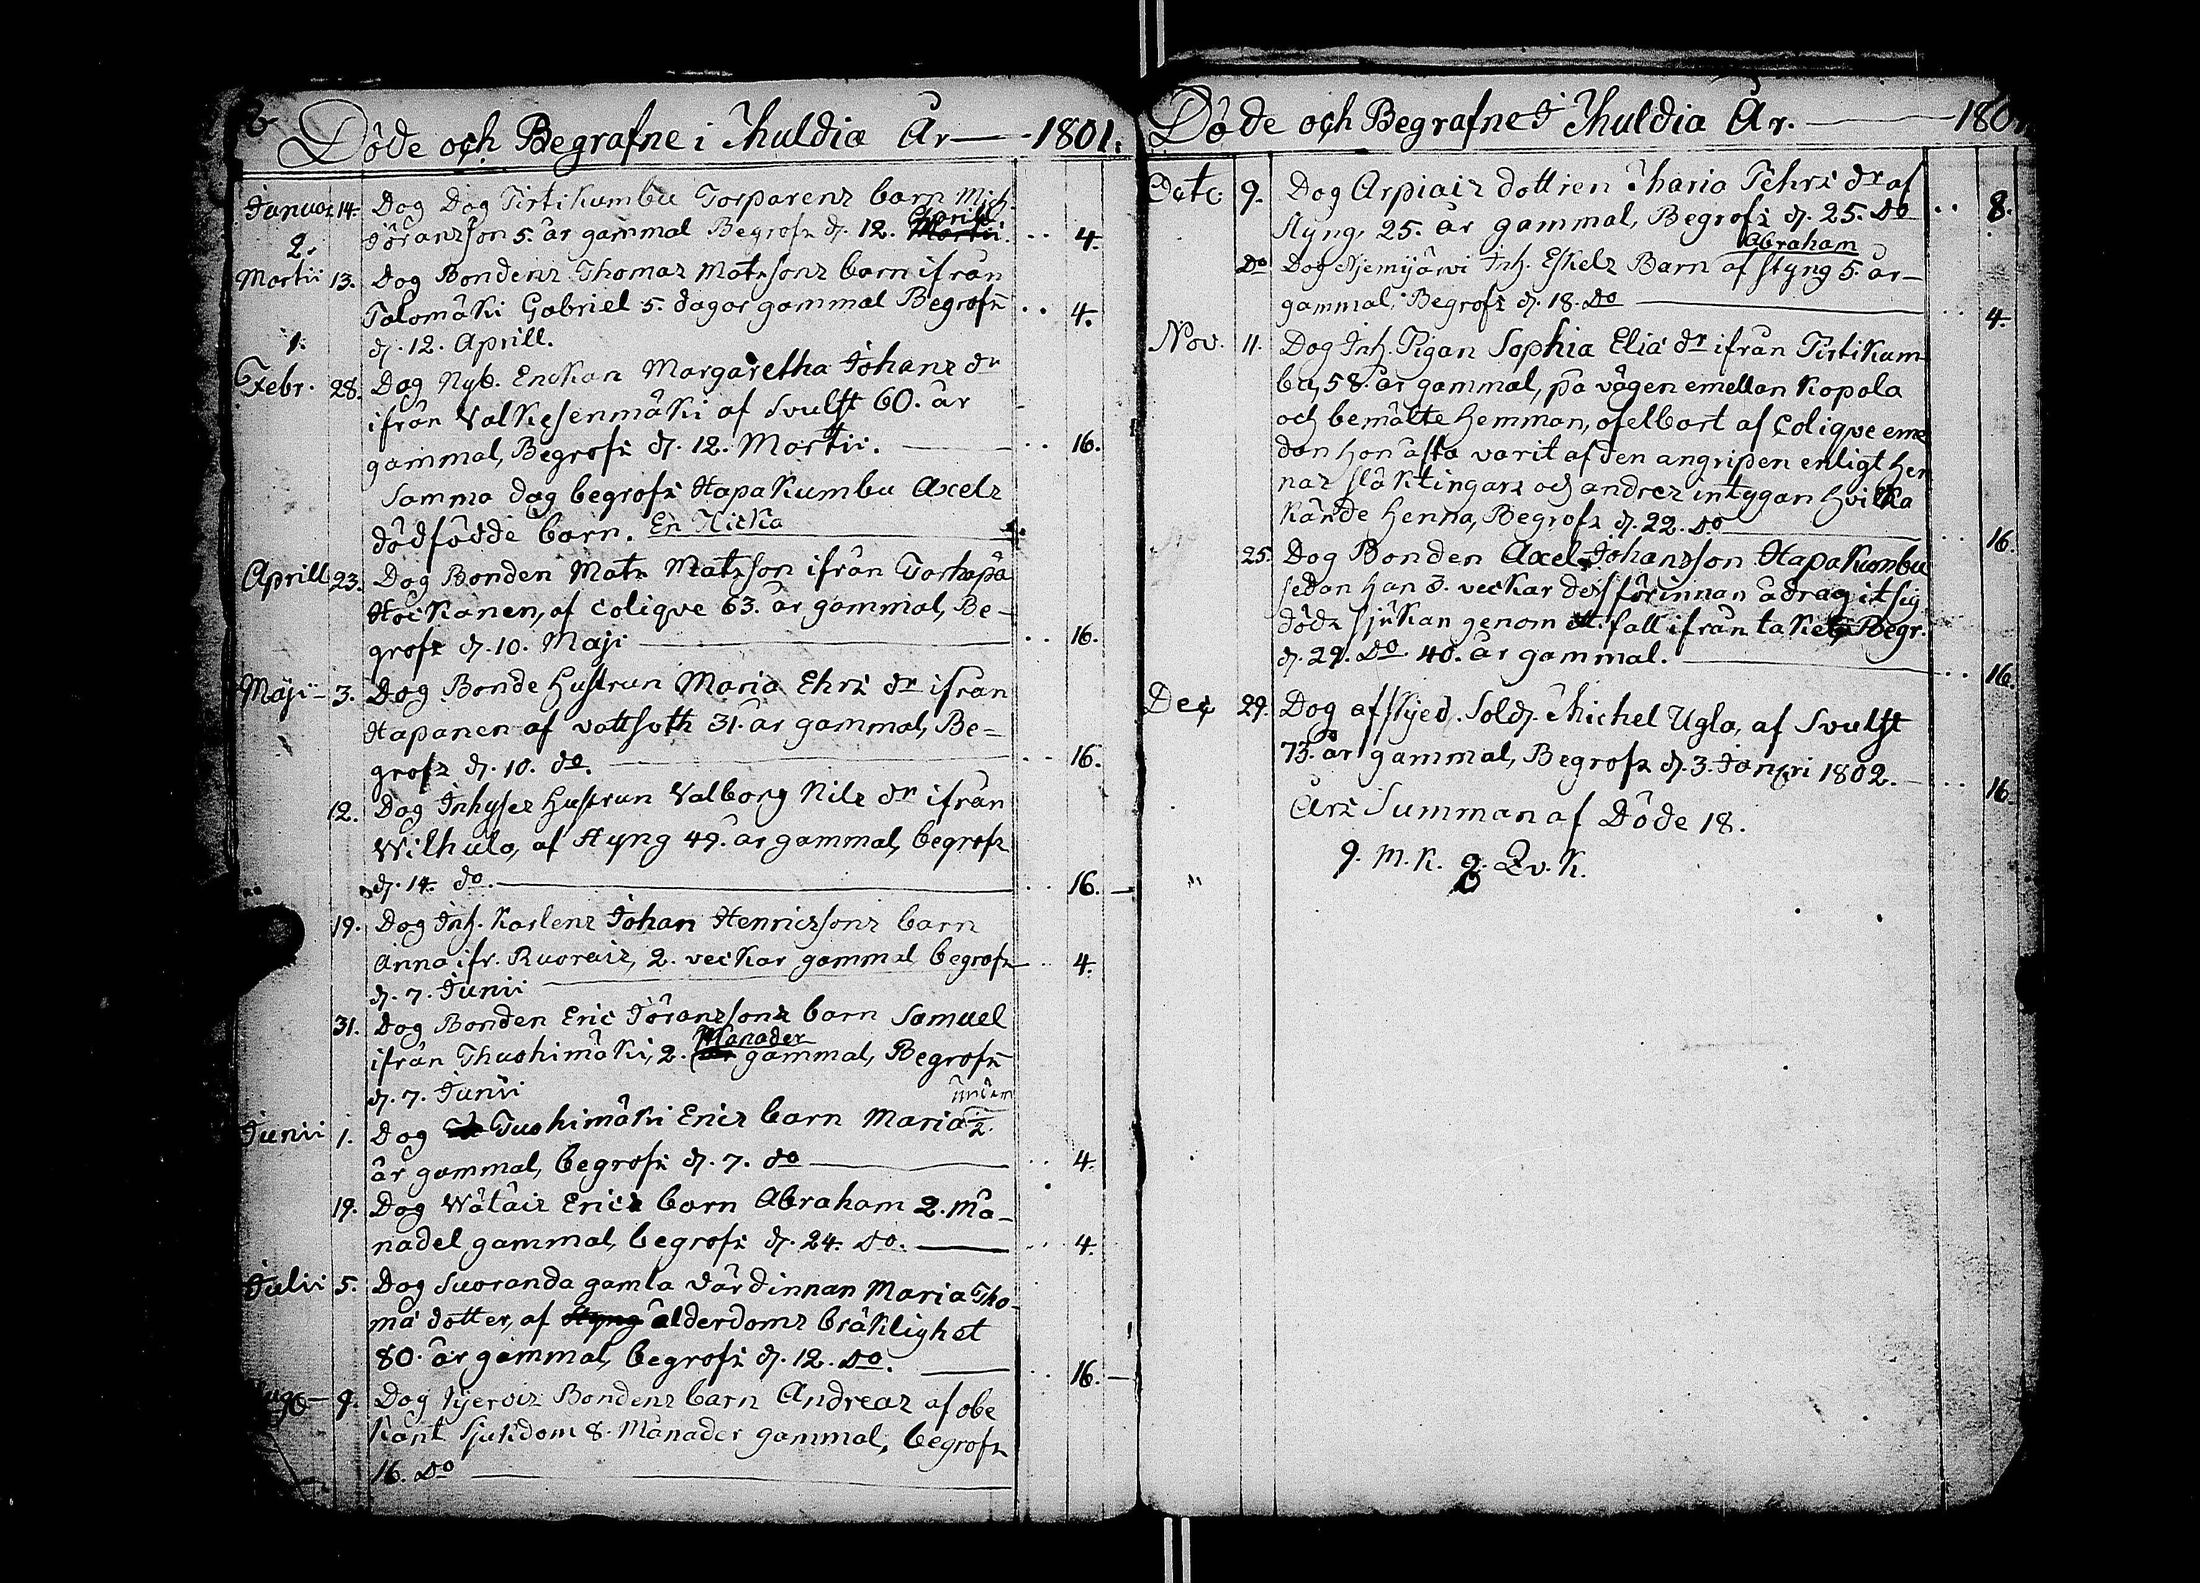 Döde och Begrafne i Thuldia År — 1801.
Januar 14. Dog Dog Pirtikumbu Torparens barn Mich.
Jöransson 5. år gammal Begrofs d. 12. Aprill Martii. .. 4.
2.
Martii 13. Dog Bondens Thomas Matssons barn ifrån
Talomäki Gabriel 5. dagar gammal Begrofs .. 4.
1. d. 12. Aprill.
Febr. 28. Dog Nyb. Enckan Margaretha Johans dr
ifrån Valkesenmäki af Svulst 60. år
gammal, Begrofs d. 12. Martii. .. 16.
Samma dag begrofs Hapakumbu Axels
dödfödde barn. En Flicka
Aprill 23. Dog Bonden Mats Matsson ifrån Torhapa
Hockanen, af colique 63. år gammal, Be-
grofs d. 10. Maji .. 16.
Maji 3. Dog Bonde Hustrun Maria Ehrs dr ifrån
Hapanen af vattsoth 31. år gammal, Be=
grofs d. 10. do. .. 16.
12. Dog Inhyses Hustrun Valborg Nils dr ifrån
Wilhula, af Styng 49. år gammal, begrofs
d. 14. do. .. 16.
19. Dog Inh. Karlens Johan Henricssons barn
Anna ifr. Ruorais, 2. veckar gammal begrofs .. 4.
d. 7. Junii
31. Dog Bonden Eric Jöranssons barn Samuel
Månader
ifrån Thuohimäki, 2. år gammal, Begrofs
d. 7. Junii
Junii 1. Dog Tuohimäki Erics barn Maria 2.
år gammal, begrofs d. 7. do .. 4.
19. Dog Wätäis Erics barn Abraham 2. Må-
nadel gammal, begrofs d. 24. do. .. 4.
Julii 5. Dog Suoranda gamla värdinnan Maria Tho-
mä dotter, af Styng ålderdoms bräklighet
80. år gammal, begrofs d. 12. do. .. 16.
9. Dog Kjervis Bondens barn Andreas af obe
kant sjukdom 8. Månader gammal, begrofs
16. do
Döde och Begrafne I Thuldia År. — 180
Octc. 9. Dog Arpiais dottren Maria Pehrs dr af
Styng, 25. år gammal, Begrofs d. 25. do .. 8.
Abraham
Do Dog Njemijärvi Inh. Eskels Barn af styng 5. år
gammal, Begrofs d. 18. do .. 4.
Nov. 11. Dog Inh. Pigan Sophia Eliä dr ifrån Pirtikum-
bu, 58. år gammal, på vägen emellan Kopola
och bemälte Hemman, ofelbart af Colique eme
dan hon åfta varit af den angripen enligt Hen
nas släktingars och andres intygan Hvilka
kände Henna, Begrofs d. 22. do .. 16.
25. Dog Bonden Axel Johansson Hapakumbu
sedan han 3. veckar dess förinnan ådragit sig
döds sjukan genom et fall ifrån taket, Begr.
d. 29. do. 40. år gammal. .. 16.
Dec 29. Dog afskjed. Sold. Michel Ugla, af Svulst
73. år gammal, Begrofs d. 3. Januari 1802. .. 16.
Års Summan af Döde 18.
9. M. K. 9. Qv. K.